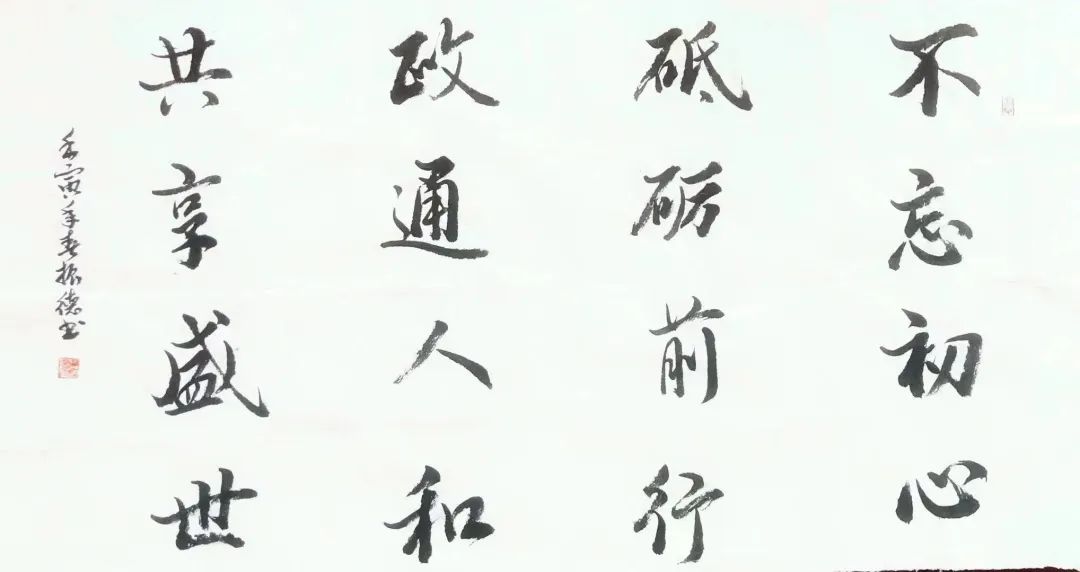 不忘初心
砥砺前行
政通人和
共享盛世
壬寅年春振德书